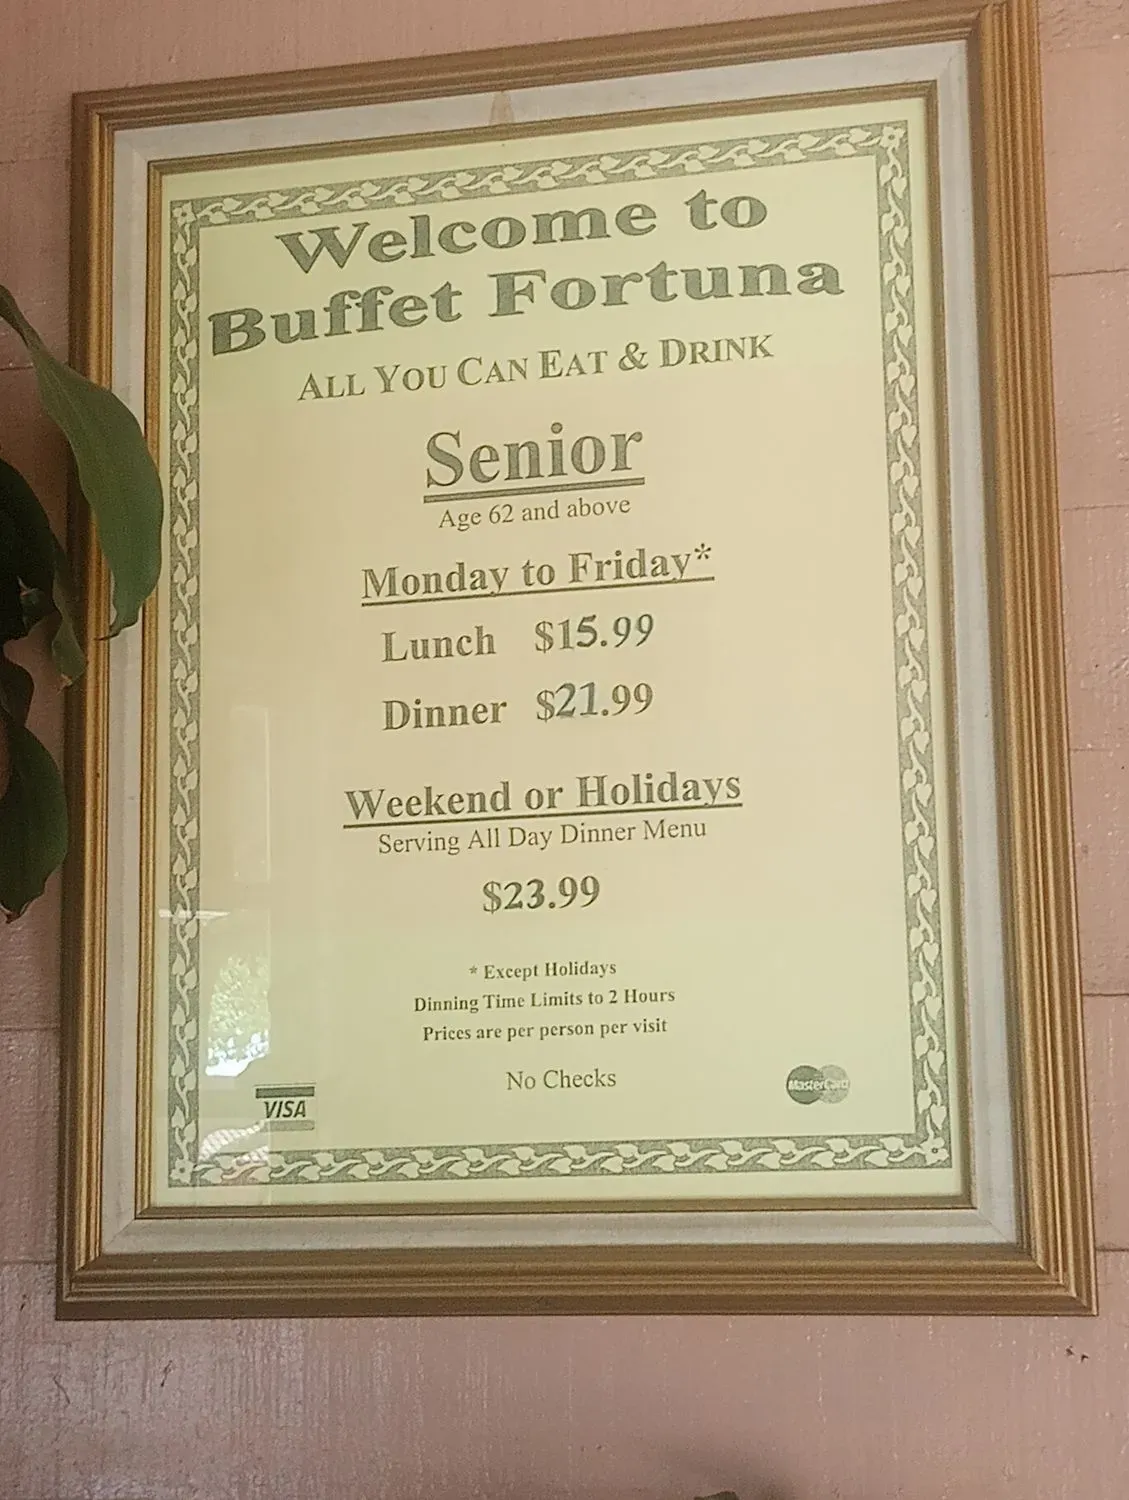 Welcome to
Buffet Fortuna
ALL YOU CAN EAT & DRINK
Senior
Age 62 and above
Monday to Friday*
Lunch $15.99
Dinner $21.99
Weekend or Holidays
Serving All Day Dinner Menu
$23.99
* Except Holidays
Dinning Time Limits to 2 Hours
Prices are per person per visit
No Checks
VISA
MasterCard